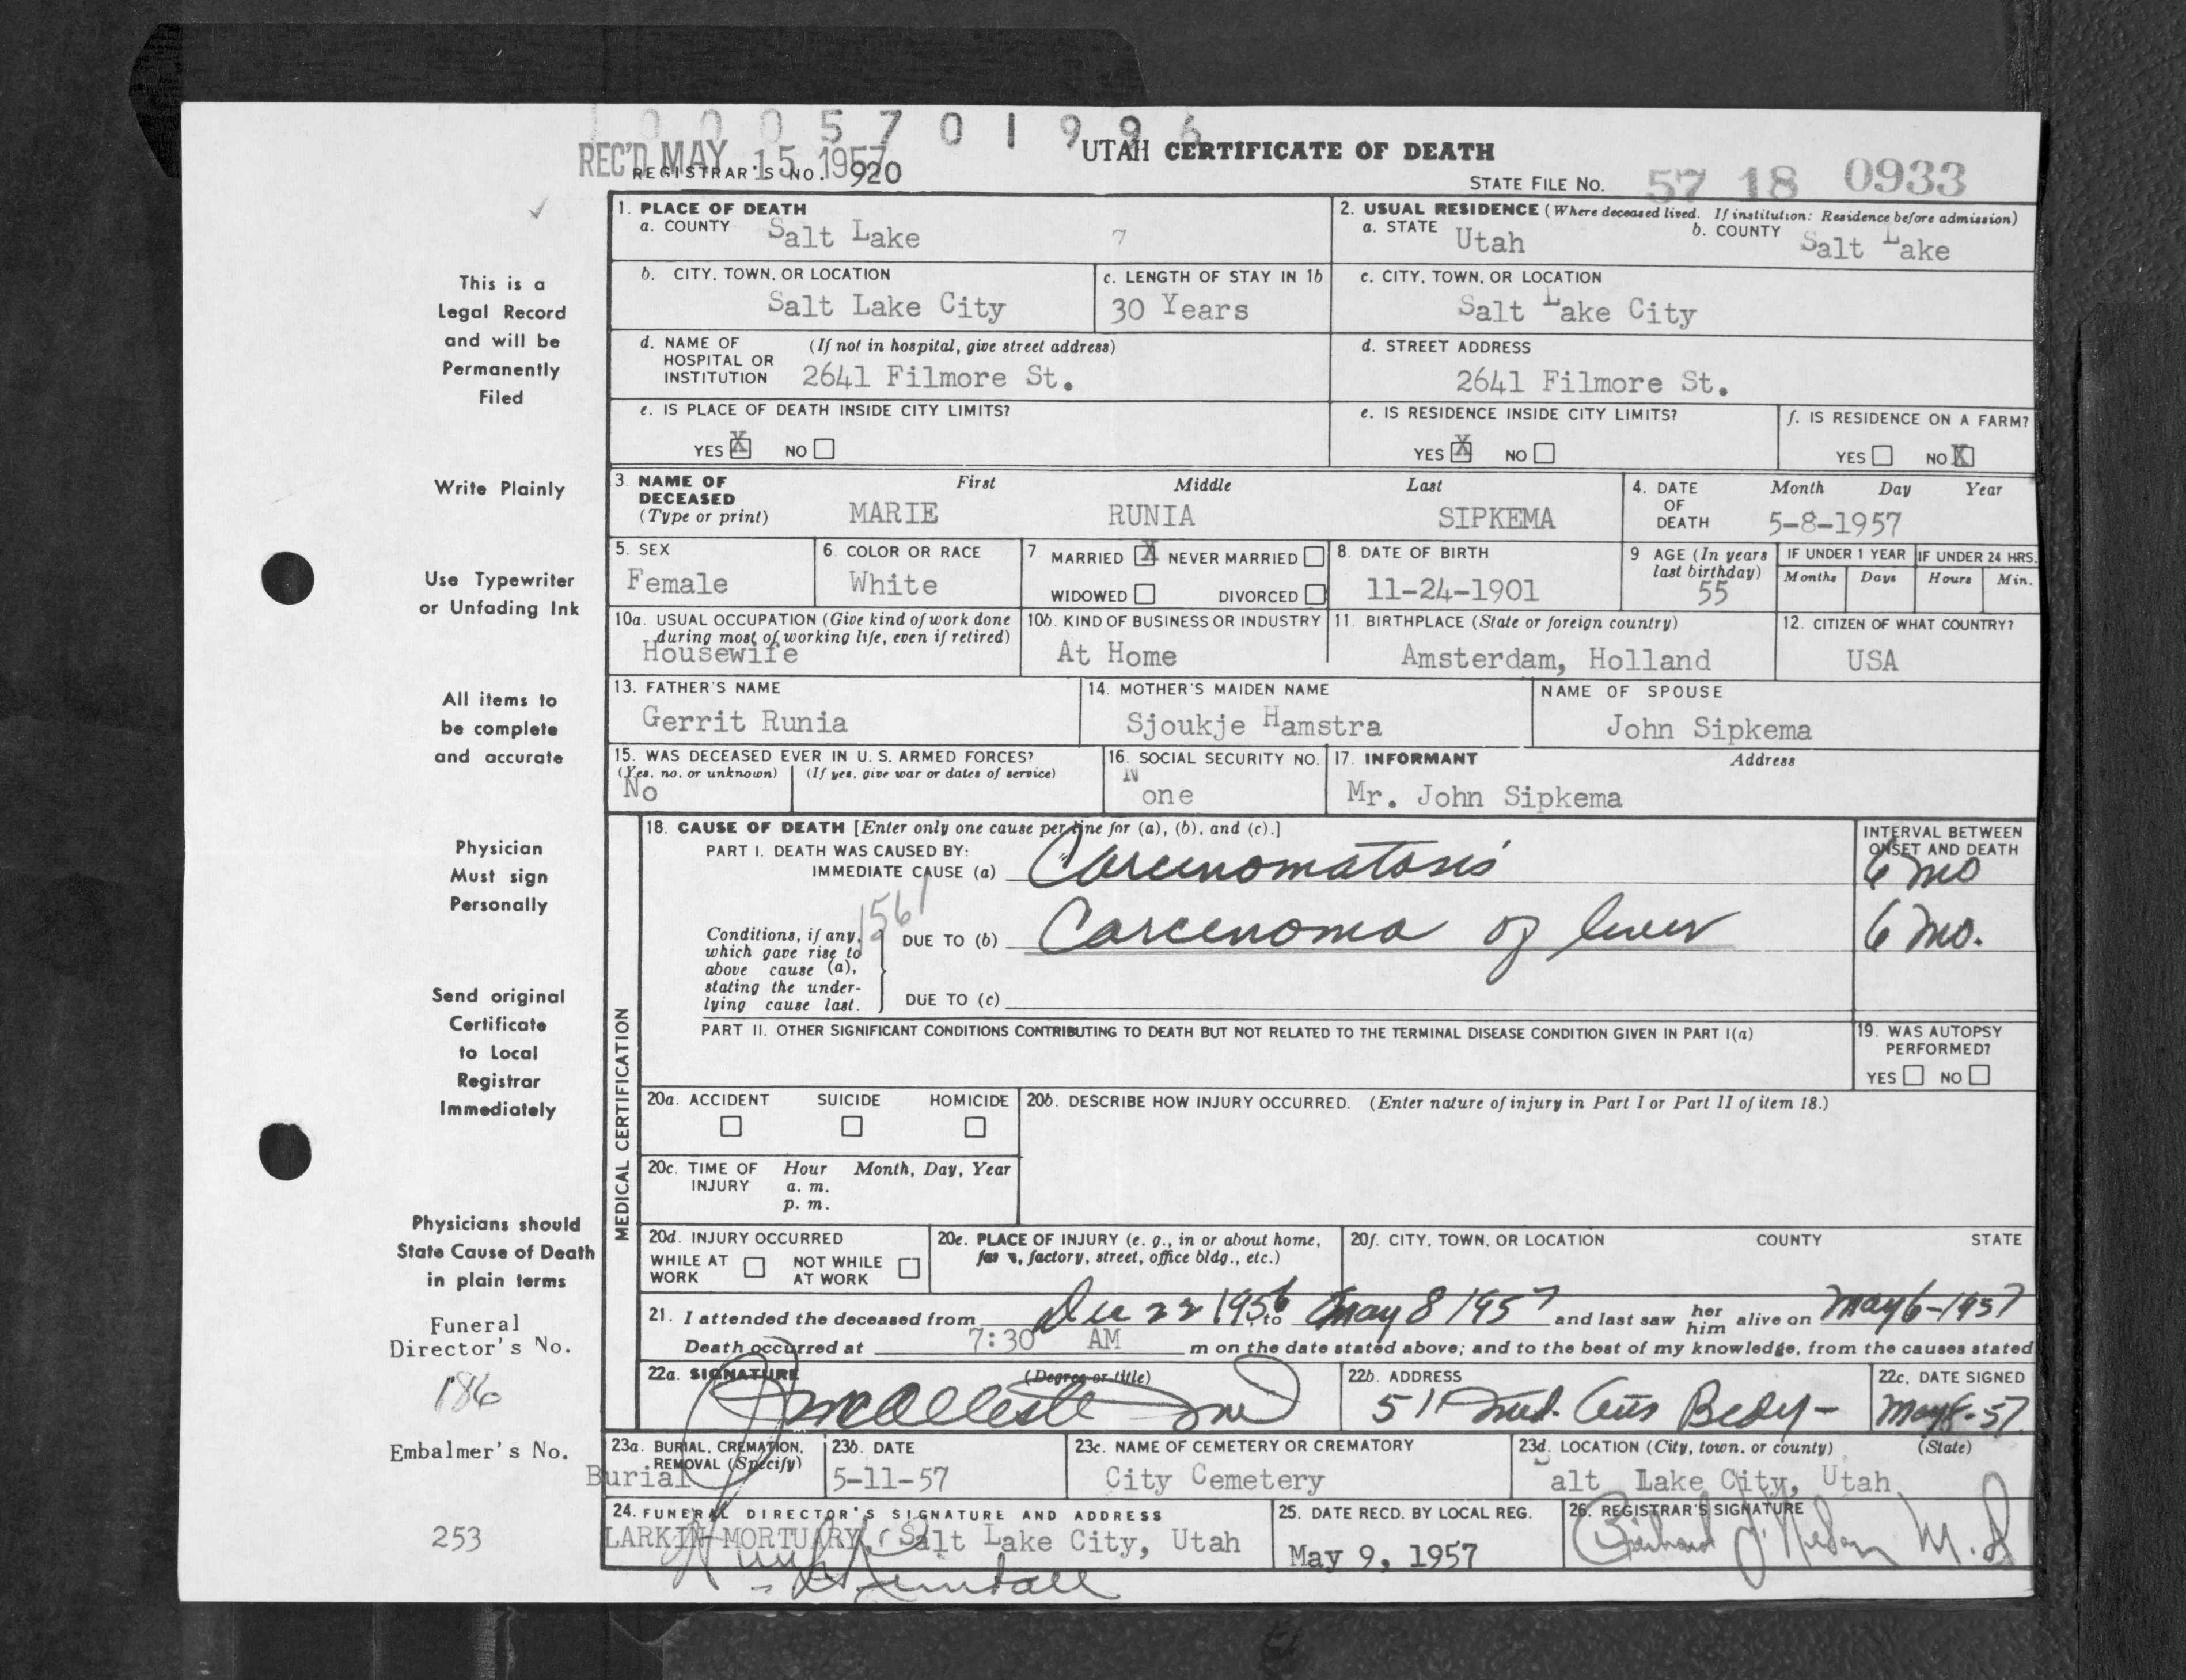 1 0 0 0 5 7 0 1 9 9 6
REC'D MAY 15 1957
UTAH CERTIFICATE OF DEATH
REGISTRAR'S NO. 920
STATE FILE NO. 57 18 0933
1. PLACE OF DEATH
a. COUNTY Salt Lake 7
2. USUAL RESIDENCE (Where deceased lived. If institution: Residence before admission)
a. STATE Utah b. COUNTY Salt Lake
b. CITY, TOWN, OR LOCATION
Salt Lake City
c. LENGTH OF STAY IN 1b
30 Years
c. CITY, TOWN, OR LOCATION
Salt Lake City
d. NAME OF HOSPITAL OR INSTITUTION (If not in hospital, give street address)
2641 Filmore St.
d. STREET ADDRESS
2641 Filmore St.
e. IS PLACE OF DEATH INSIDE CITY LIMITS?
YES X NO
e. IS RESIDENCE INSIDE CITY LIMITS?
YES X NO
f. IS RESIDENCE ON A FARM?
YES NO X
3. NAME OF DECEASED (Type or print)
First Middle Last
MARIE RUNIA SIPKEMA
4. DATE OF DEATH Month Day Year
5-8-1957
5. SEX
Female
6. COLOR OR RACE
White
7. MARRIED X NEVER MARRIED
WIDOWED DIVORCED
8. DATE OF BIRTH
11-24-1901
9 AGE (In years last birthday)
55
IF UNDER 1 YEAR
Months Days
IF UNDER 24 HRS.
Hours Min.
10a. USUAL OCCUPATION (Give kind of work done during most of working life, even if retired)
Housewife
10b. KIND OF BUSINESS OR INDUSTRY
At Home
11. BIRTHPLACE (State or foreign country)
Amsterdam, Holland
12. CITIZEN OF WHAT COUNTRY?
USA
13. FATHER'S NAME
Gerrit Runia
14. MOTHER'S MAIDEN NAME
Sjoukje Hamstra
NAME OF SPOUSE
John Sipkema
15. WAS DECEASED EVER IN U. S. ARMED FORCES?
(Yes, no, or unknown) (If yes, give war or dates of service)
No
16. SOCIAL SECURITY NO.
None
17. INFORMANT Address
Mr. John Sipkema
MEDICAL CERTIFICATION
18. CAUSE OF DEATH [Enter only one cause per line for (a), (b), and (c).]
PART I. DEATH WAS CAUSED BY:
IMMEDIATE CAUSE (a) Carcinomatosis
INTERVAL BETWEEN ONSET AND DEATH
6 mo
1561
Conditions, if any, which gave rise to above cause (a), stating the underlying cause last.
DUE TO (b) Carcenoma of liver
6 mo.
DUE TO (c)
PART II. OTHER SIGNIFICANT CONDITIONS CONTRIBUTING TO DEATH BUT NOT RELATED TO THE TERMINAL DISEASE CONDITION GIVEN IN PART I(a)
19. WAS AUTOPSY PERFORMED?
YES NO
20a. ACCIDENT SUICIDE HOMICIDE
20b. DESCRIBE HOW INJURY OCCURRED. (Enter nature of injury in Part I or Part II of item 18.)
20c. TIME OF INJURY Hour Month, Day, Year
a. m.
p. m.
20d. INJURY OCCURRED
WHILE AT WORK NOT WHILE AT WORK
20e. PLACE OF INJURY (e. g., in or about home, farm, factory, street, office bldg., etc.)
20f. CITY, TOWN, OR LOCATION COUNTY STATE
21. I attended the deceased from Dec 22 1956 to May 8 1957 and last saw her him alive on May 6-1957
Death occurred at 7:30 AM m on the date stated above; and to the best of my knowledge, from the causes stated
22a. SIGNATURE (Degree or title)
22b. ADDRESS
51 Med.
22c. DATE SIGNED
May 8-57
23a. BURIAL, CREMATION, REMOVAL (Specify)
Burial
23b. DATE
5-11-57
23c. NAME OF CEMETERY OR CREMATORY
City Cemetery
23d. LOCATION (City, town, or county) (State)
Salt Lake City, Utah
24. FUNERAL DIRECTOR'S SIGNATURE AND ADDRESS
LARKIN MORTUARY, Salt Lake City, Utah
25. DATE RECD. BY LOCAL REG.
May 9, 1957
26. REGISTRAR'S SIGNATURE
M.D
This is a
Legal Record
and will be
Permanently
Filed
Write Plainly
Use Typewriter
or Unfading Ink
All items to
be complete
and accurate
Physician
Must sign
Personally
Send original
Certificate
to Local
Registrar
Immediately
Physicians should
State Cause of Death
in plain terms
Funeral
Director's No.
186
Embalmer's No.
253